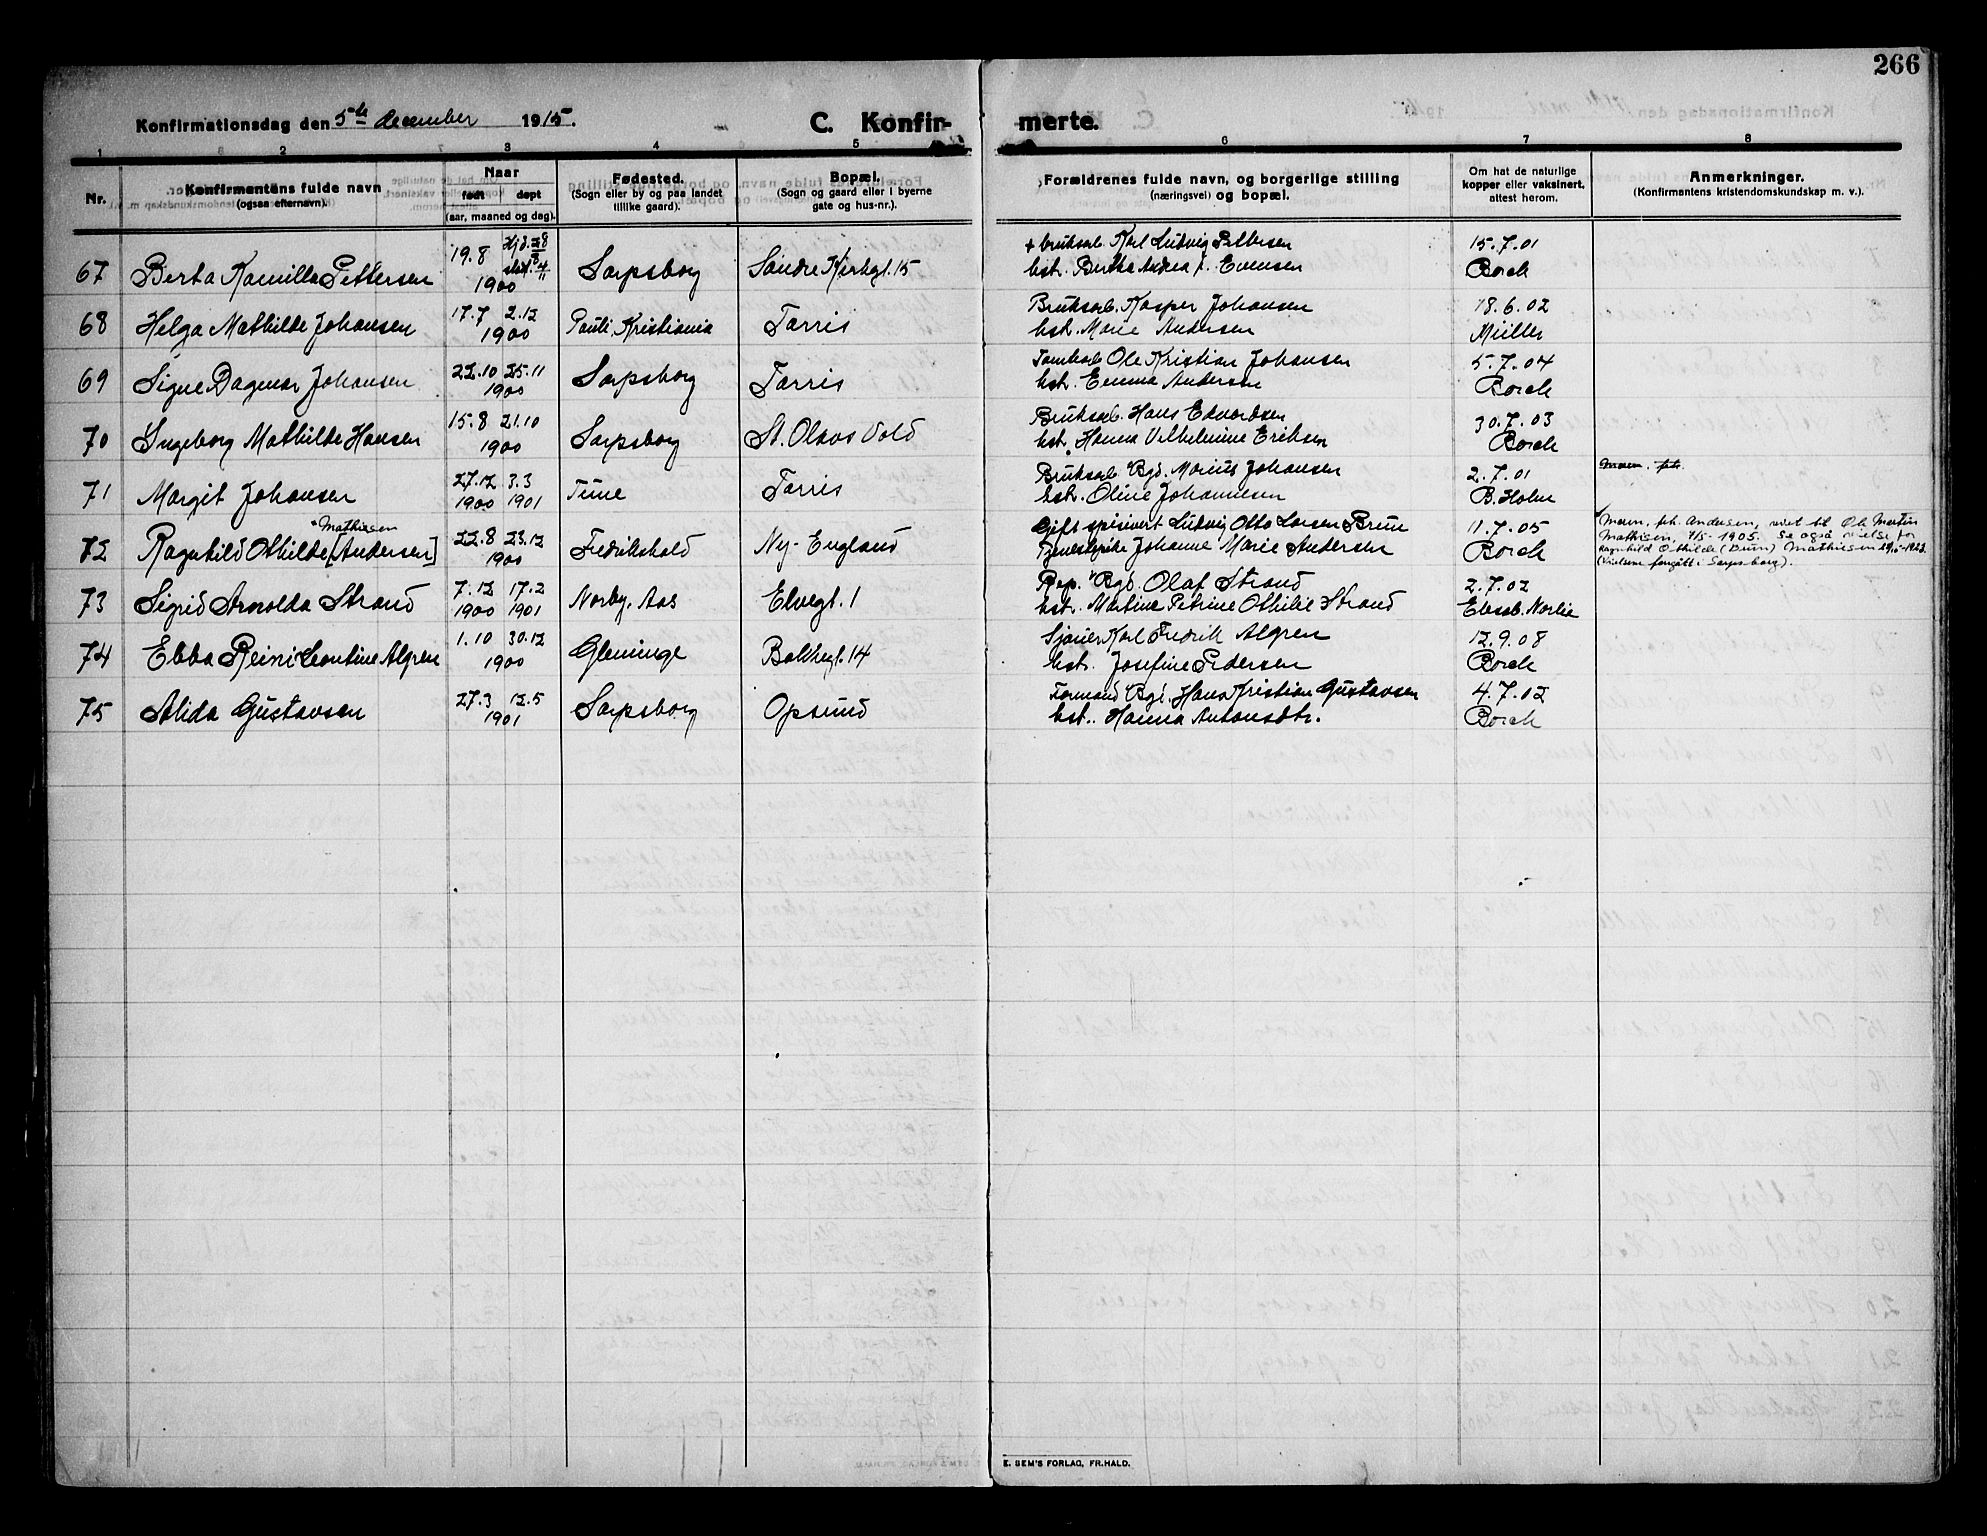 266
Konfirmationsdag den 5te december 1915.
C. Konfirmerte.
1 2 3 4 5 6 7 8
Nr.
Konfirmantens fulde navn
(ogsaa efternavn).
Naar
født døpt
(aar, maaned og dag).
Fødested.
(Sogn eller by og paa landet
tillike gaard).
Bopæl.
(Sogn og gaard eller i byerne
gate og hus-nr.).
Forældrenes fulde navn, og borgerlige stilling
(næringsvei) og bopæl.
Om hat de naturlige
kopper eller vaksinert,
attest herom.
Anmerkninger.
(Konfirmantens kristendomskundskap m. v.).
67 Berta Kamilla Pettersen 19.8 1900 Sarpsborg Søndre Kirkegt. 15
+ bruksarb. Karl Ludvig Pettersen 15.7.01
hst. Berthe Andrea f. Evensen Borch
68 Helga Mathilde Johansen 17.7 2.12 1900 Pauli, Kristiania Tarris
Bruksarb. Kasper Johansen 18.6.02
hst. Marie Andersen Müller
69 Signe Dagmar Johansen 22.10 25.11 1900 Sarpsborg Tarris
Tomtearb. Ole Kristian Johansen 5.7.04
hst. Emma Andersen Borch
70 Ingeborg Mathilde Hansen 15.8 21.10 1900 Sarpsborg St. Olavs Vold
Bruksarb. Hans Edvardsen 30.7.03
hst. Hanna Vilhelmine Eriksen Borch
71 Margit Johansen 27.12 3.3 1900 1901 Tune Tarris
Bruksarb. Bgd. Marius Johansen 2.7.01
hst. Oline Johannesen B. Holm
72 Ragnhild Othilde [Andersen] Mathiesen 22.8 23.12 1900 Fredrikshald Ny-England
Gift spisevert Ludvig Otto Larsen Bruu 11.7.05
Tjenestepike Johanne Marie Andersen Borch
Moren, frk. Andersen, viet til Ole Martin
Mathisen, 7/5-1905. Se også vielse for
Ragnhild Othilde (Bruu) Mathiesen
(Vielsen foregått i Sarpsborg).
73 Sigrid Arnolda Strand 7.12 17.2 1900 1901 Norby, Aas Elvegt. 1
Rep. Bgd. Olaf Strand 2.7.02
hst. Martine Petrine Othilie Strand Norlie
74 Ebba Reini Leontine Algren 1.10 30.12 1900 Glemminge Bakkegt. 14
Sjauer Karl Fredrik Algren 12.9.08
hst. Josefine Pedersen Borch
75 Alida Gustavsen 27.3 12.5 1901 Sarpsborg Opsund
Formand Bgd. Hans Kristian Gustavsen 4.7.02
hst. Hanna Antonsdtr. Borch
E. SEM'S FORLAG, FR.HALD.